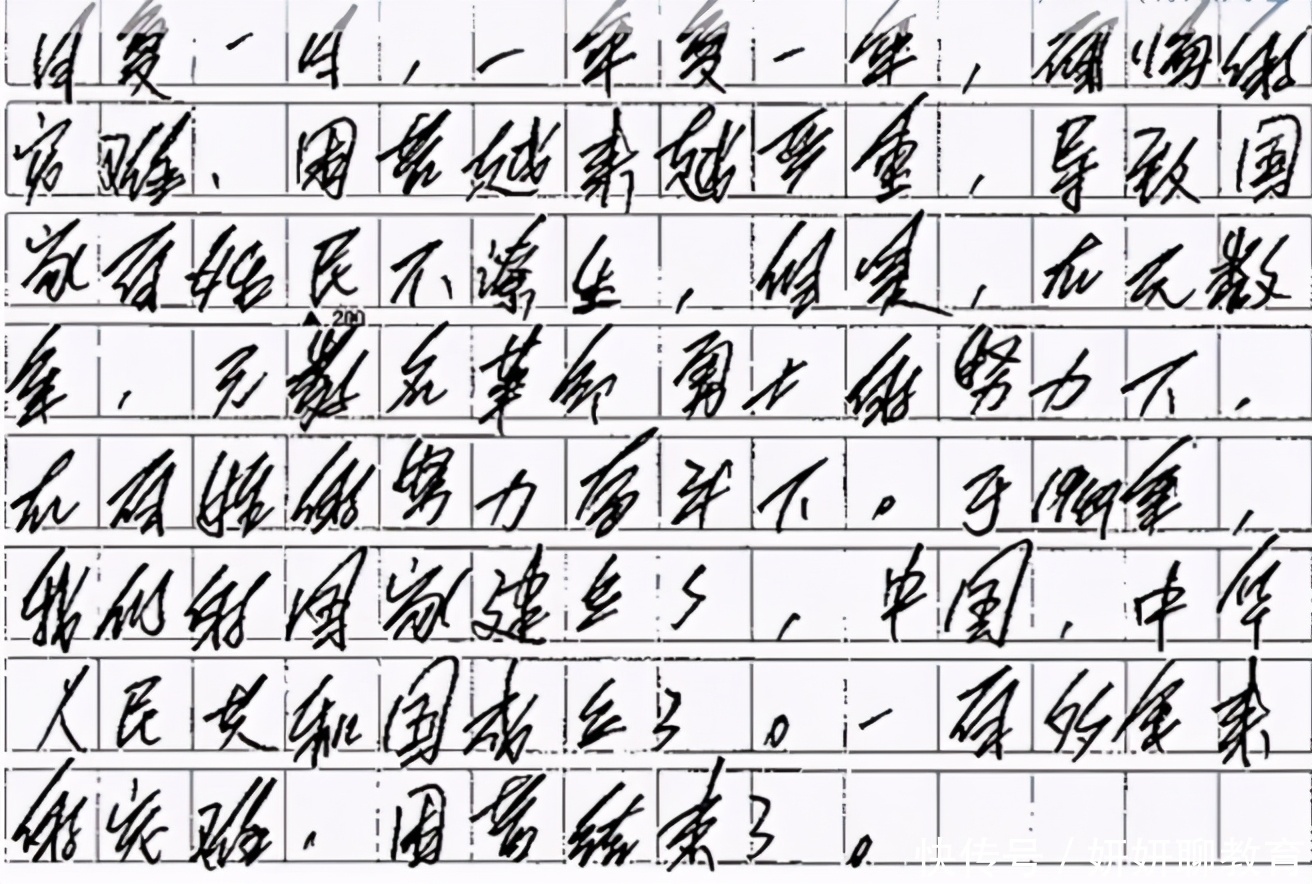 日复一日，一年复一年，砸悔的
灾难、困苦越来越严重，导致国
家百姓民不潦生，但是，在无数
年，无数名革命勇士的努力下，
▲ 200
在百姓的努力奋斗下。于1949年，
我们的国家建立了，中国，中华
人民共和国成立了。一百多年来
的灾难，困苦结束了。
快传号 / 妍妍聊教育